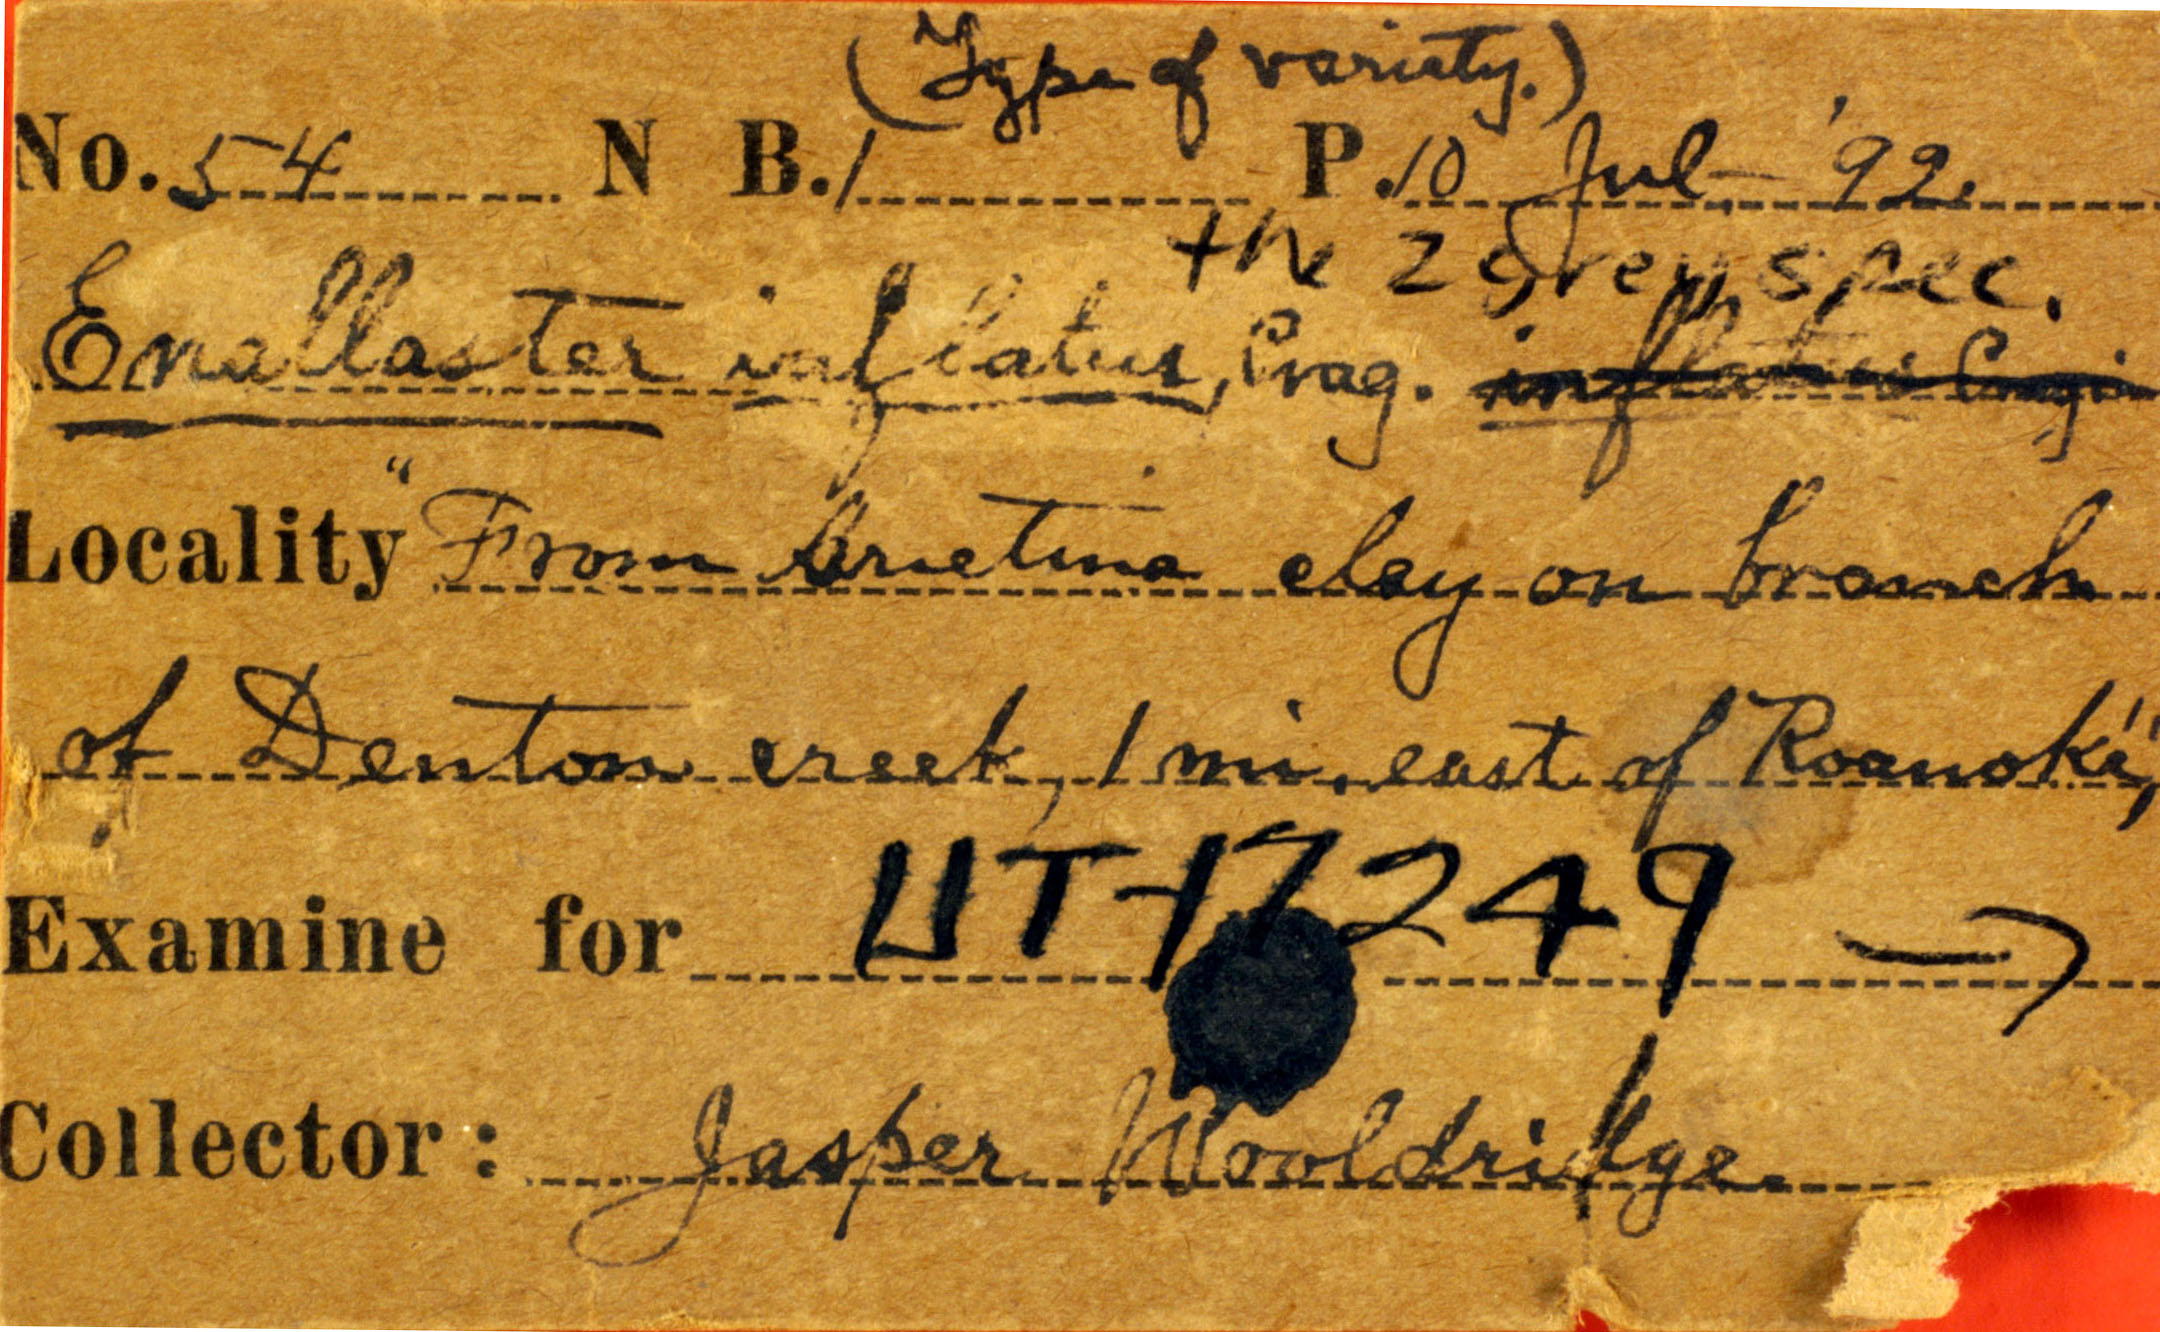 (Type of variety.)
No. 54 N B. 1 P. 10 Jul '92.
the 2 grey spec.
Enallaster inflatus, Crag. inflatus Cragin
Locality "From Arietina clay on branch
of Denton creek, 1 mi. east of Roanoke,"
Examine for UT-17249
Collector: Jasper Wooldridge